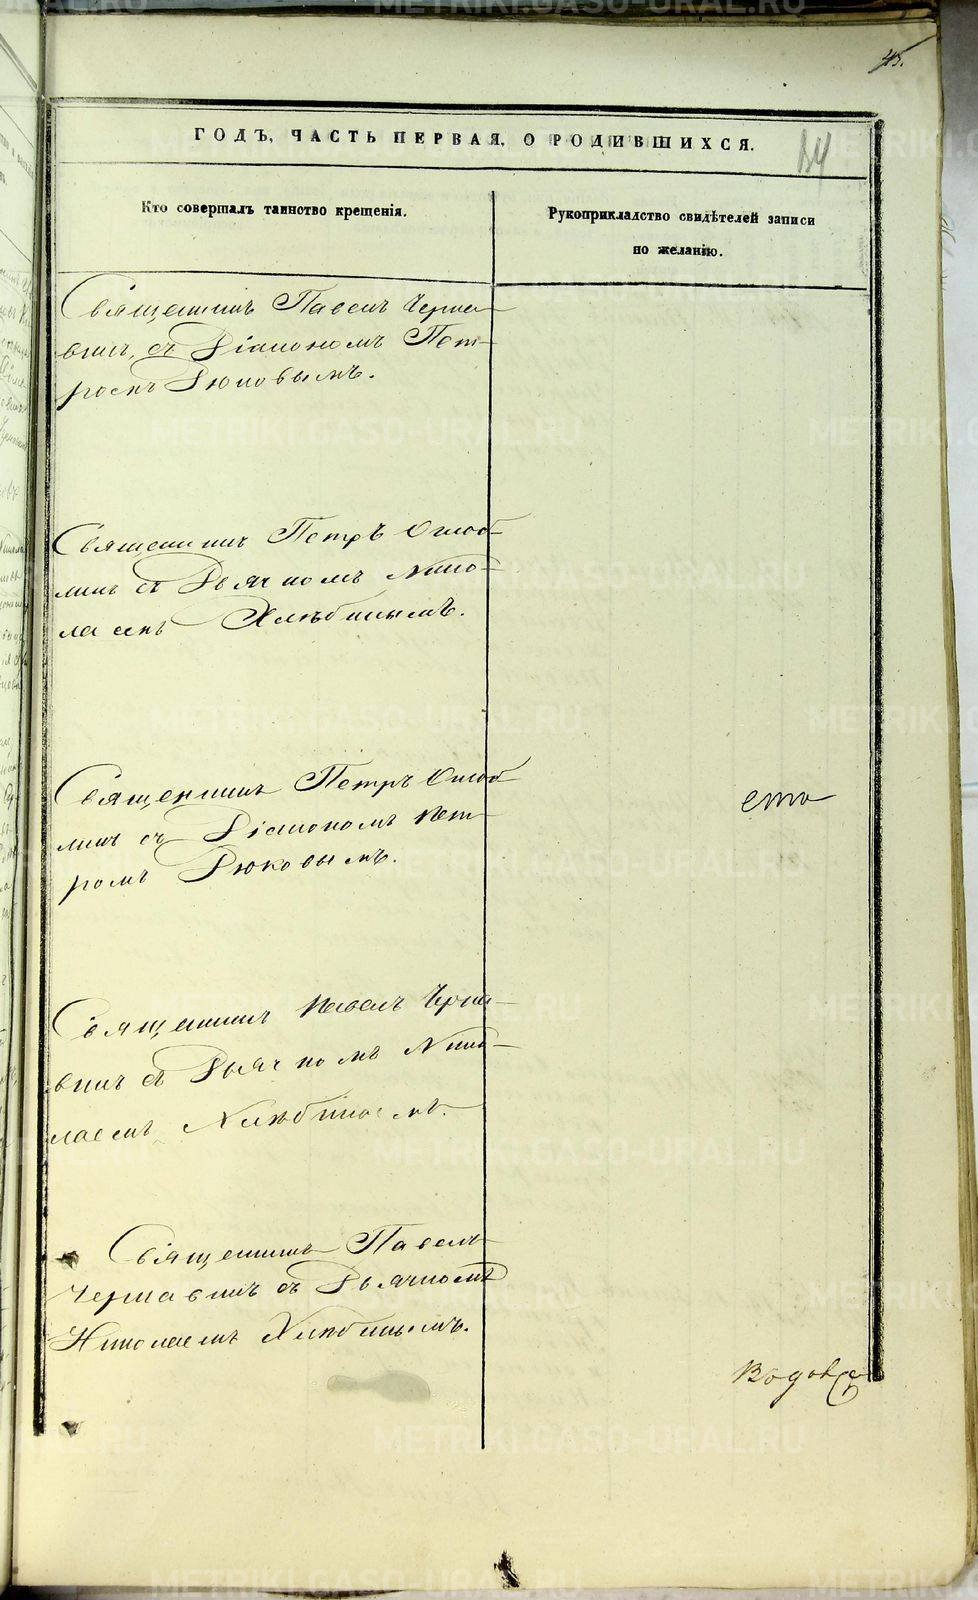 45.
ГОДЪ, ЧАСТЬ ПЕРВАЯ, О РОДИВШИХСЯ.
Кто совершалъ таинство крещенія.
Рукоприкладство свидѣтелей записи
по желанію.
Священникъ Павелъ Черна-
винъ съ Діакономъ Пет-
ромъ Рюковымъ.
Священникъ Петръ Оглоб-
линъ съ Дьячкомъ Нико-
лаемъ Хлѣбинымъ.
Священникъ Петръ Оглоб
линъ съ Діакономъ Пет-
ромъ Рюковымъ.
ето
Священникъ Павелъ Черна-
винъ съ Дьячкомъ Нико-
лаемъ Хлѣбинымъ.
Священникъ Павелъ
Чернавинъ съ Дьячкомъ
Николаемъ Хлѣбинымъ.
METRIKI.GASO-URAL.RU